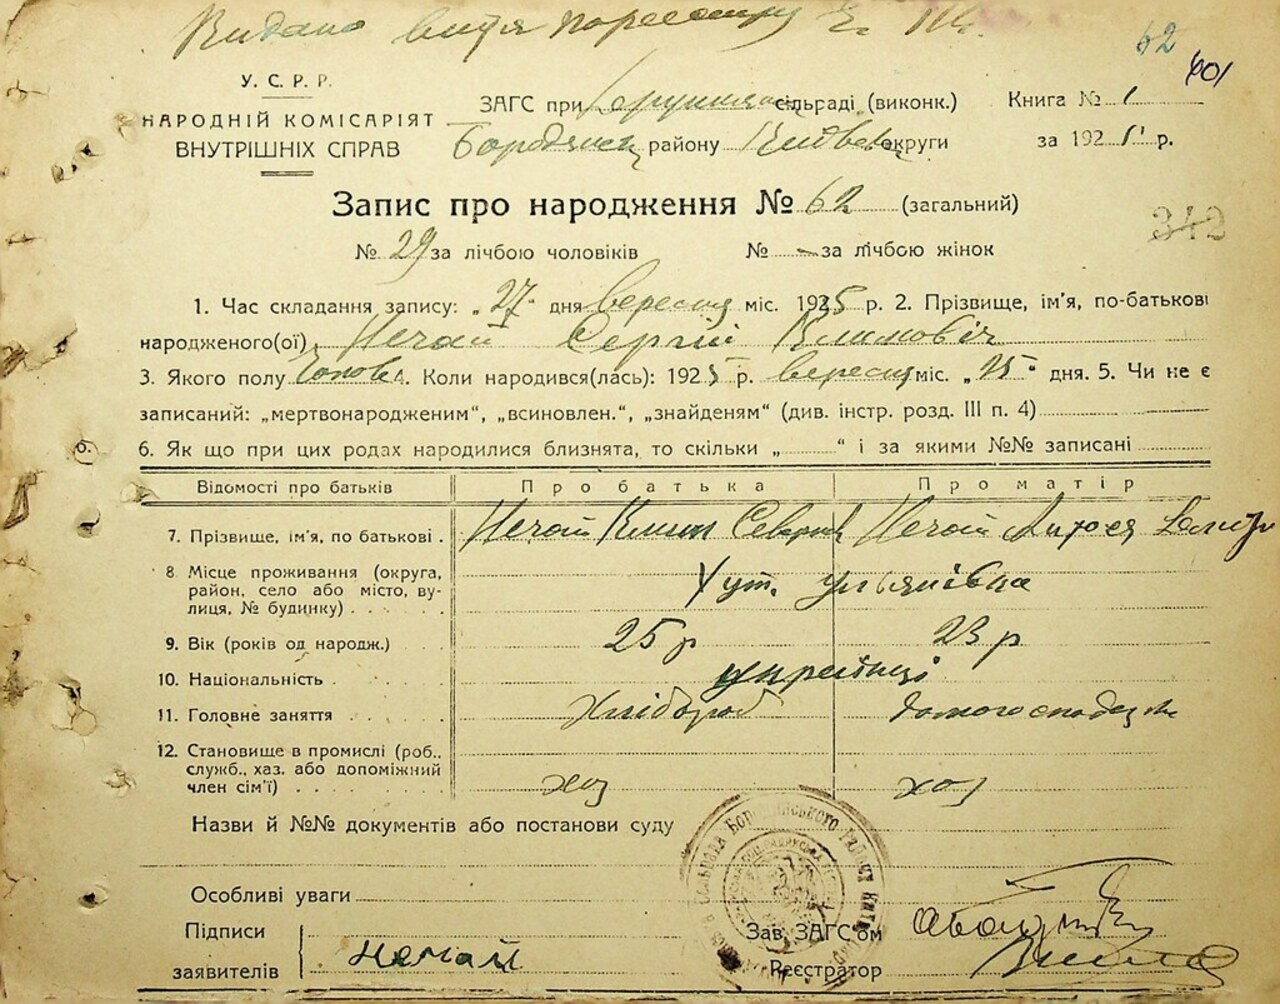 Видано витя
62
601
У. С. Р. Р.
НАРОДНІЙ КОМІСАРІЯТ
ВНУТРІШНІХ СПРАВ
ЗАГС при сільраді (виконк.)
Бородянськ району Київськ округи
Книга № 1
за 1925 р.
Запис про народження № 62 (загальний)
342
№ 29 за лічбою чоловіків № - за лічбою жінок
1. Час складання запису: „27“ дня вересня міс. 1925 р. 2. Прізвище, ім’я, по-батькові
народженого(ої) Нечай Сергій Климовіч
3. Якого полу Чолов. 4. Коли народився(лась): 1925 р. вересня міс. „25“ дня. 5. Чи не є
записаний: „мертвонародженим“, „всиновлен.“, „знайденям“ (див. інстр. розд. III п. 4)
6. Як що при цих родах народилися близнята, то скільки „ “ і за якими №№ записані
Відомості про батьків Про батька Про матір
7. Прізвище, ім’я, по батькові . Нечай Клим Нечай
8 Місце проживання (округа,
район, село або місто, ву-
лиця, № будинку) . . . . Хут. Ульянівка
9. Вік (років од народж.) . 25 р 23 р
10. Національність . . . . українці
11. Головне заняття . . . . Хлібороб
12. Становище в промислі (роб.,
служб., хаз. або допоміжний
член сім’ї) . . . . . . хоз хоз
Назви й №№ документів або постанови суду
Особливі уваги
Підписи
заявителів Нечай
Зав. ЗАГС’ом
Реєстратор